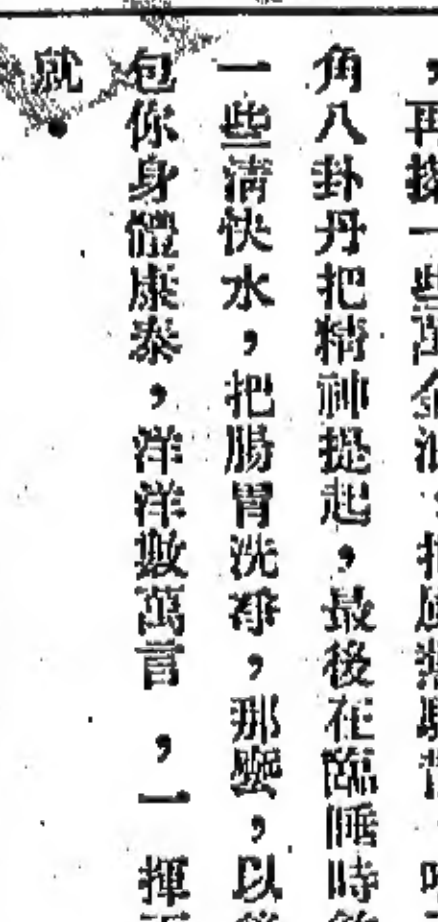 ，再搽一些萬金油，
角八卦丹把精神提起，最後在臨睡時
一些清快水，把腸胃洗凈，那麽，以
包你身體康泰，洋洋數萬言，一揮
就。